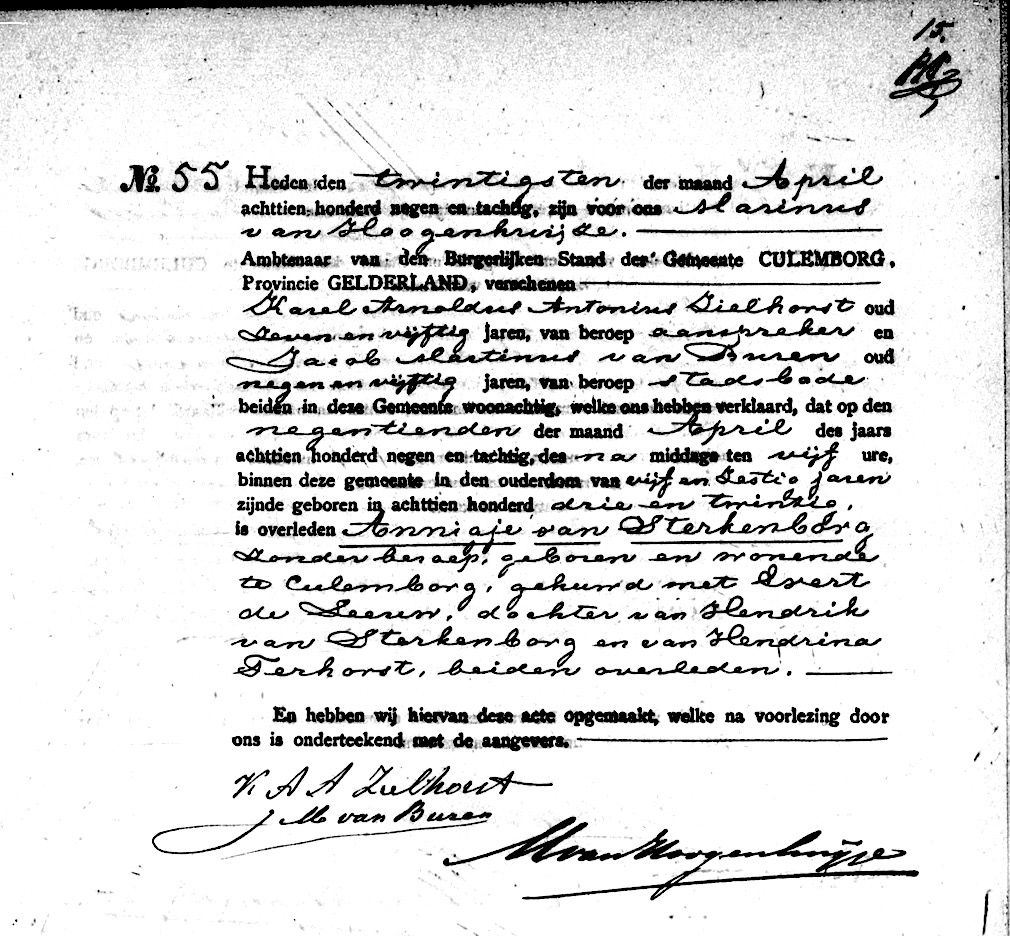 15.
No. 55 Heden den twintigsten der maand April
achttien honderd negen en tachtig, zijn voor ons Marinus
van Hoogenhuijze.
Ambtenaar van den Burgerlijken Stand der Gemeente CULEMBORG,
Provincie GELDERLAND, verschenen
Karel Arnoldus Antonius Zielhorst oud
zeven en vijftig jaren, van beroep aanspreker en
Jacob Martinus van Buren oud
negen en vijftig jaren, van beroep stadsbode
beiden in deze Gemeente woonachtig, welke ons hebben verklaard, dat op den
negentienden der maand April des jaars
achttien honderd negen en tachtig, des na middags ten vijf ure,
binnen deze gemeente in den ouderdom van vijf en zestig jaren
zijnde geboren in achttien honderd drie en twintig,
is overleden Annigje van Sterkenborg
zonder beroep, geboren en wonende
te Culemborg, gehuwd met Evert
de Leeuw, dochter van Hendrik
van Sterkenborg en van Hendrina
Terhorst, beiden overleden.
En hebben wij hiervan deze acte opgemaakt, welke na voorlezing door
ons is onderteekend met de aangevers.
K A A Zielhorst
J M van Buren
M van Hoogenhuijze